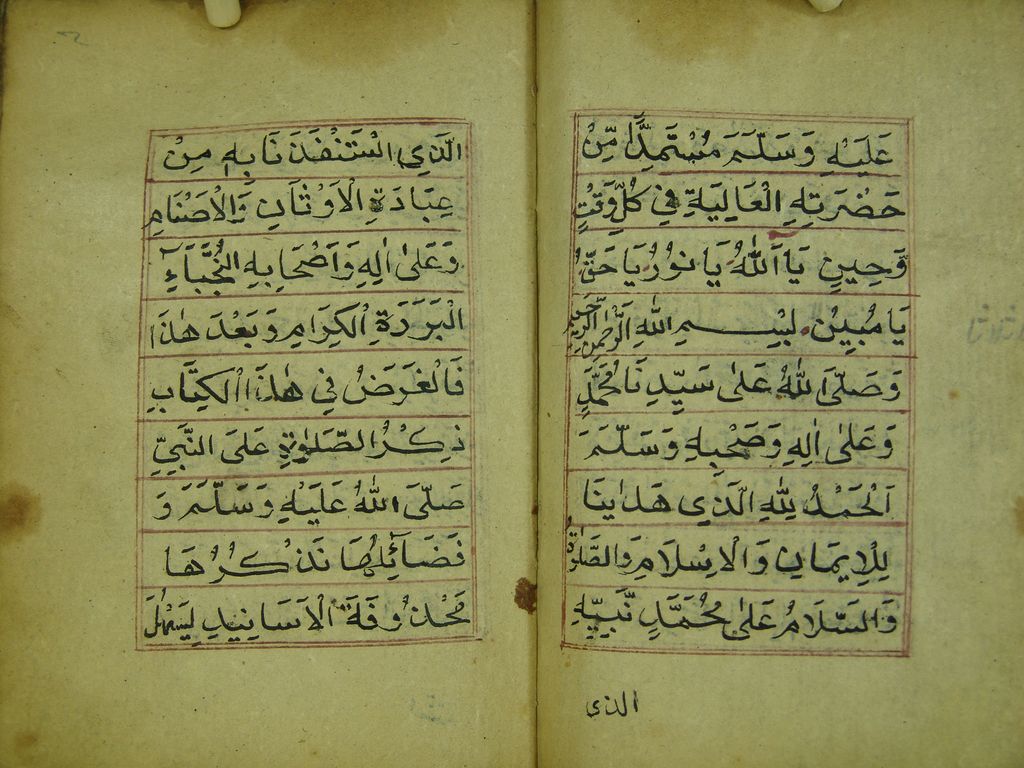 عَلَيْهِ وَسَلَّمَ مُسْتَمِدًّا مِّنْ
حَضْرَتِهِ الْعَالِيَةِ فِي كُلِّ وَقْتٍ
وَّحِينٍ يَا اَللّٰهُ يَا نُورُ يَا حَقُّ
يَا مُبِينُ لِبِسْمِ اللّٰهِ الرَّحْمٰنِ الرَّحِيمِ
وَصَلَّى اللّٰهُ عَلٰى سَيِّدِنَا مُحَمَّدٍ
وَعَلٰى اٰلِهِ وَصَحْبِهِ وَسَلَّمَ
اَلْحَمْدُ لِلّٰهِ الَّذِي هَدٰينَا
لِلْإِيمَانِ وَالْاِسْلَامِ وَالصَّلٰوةُ
وَالسَّلَامُ عَلٰى مُحَمَّدٍ نَّبِيِّهِ
الذى
الَّذِي اسْتَنْقَذَنَا بِهِ مِنْ
عِبَادَةِ الْاَوْثَانِ وَالْاَصْنَامِ
وَعَلٰى اٰلِهِ وَاَصْحَابِهِ النُّجَبَاءِ
الْبَرَرَةِ الْكِرَامِ وَبَعْدَ هٰذَا
فَالْغَرَضُ فِي هٰذَا الْكِتَابِ
ذِكْرُ الصَّلٰوةِ عَلَى النَّبِيِّ
صَلَّى اللّٰهُ عَلَيْهِ وَسَلَّمَ وَ
فَضَائِلُهَا نَذْكُرُهَا
مَحْذُوفَةَ الْاَسَانِيدِ لِيَسْهُلَ